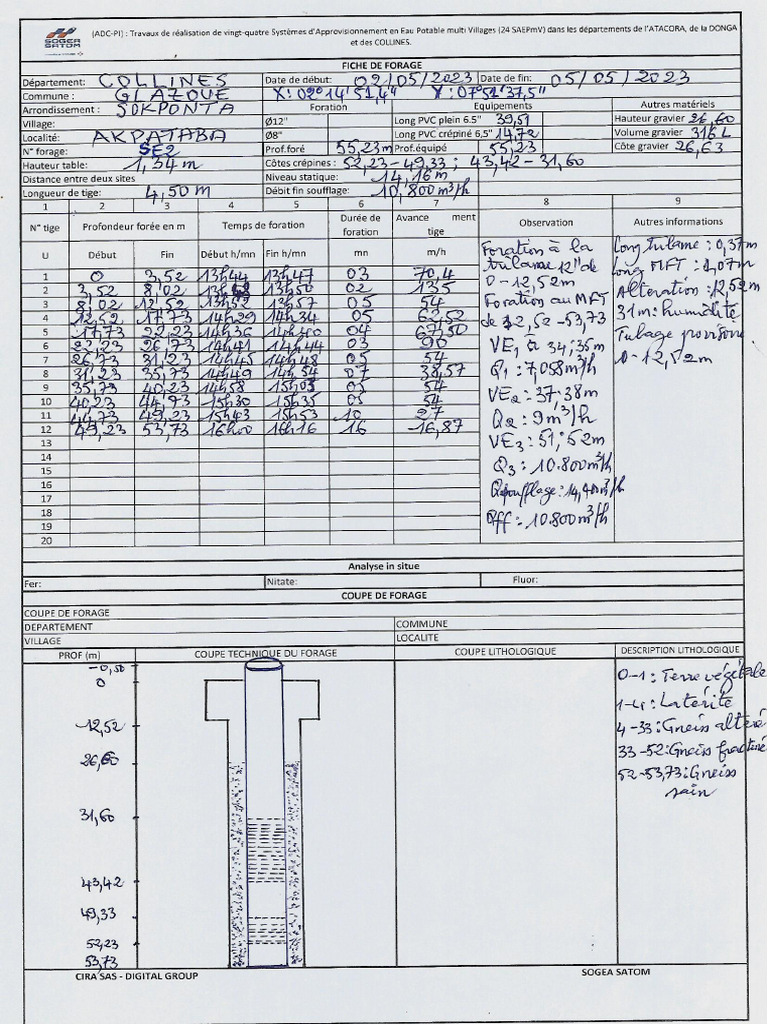 SOGEA SATOM
(ADC-PI) : Travaux de réalisation de vingt-quatre Systèmes d'Approvisionnement en Eau Potable multi Villages (24 SAEPmV) dans les départements de l'ATACORA, de la DONGA et des COLLINES.
FICHE DE FORAGE
Département: COLLINES Date de début: 02/05/2023 Date de fin: 05/05/2023
Commune : GLAZOUE X: 02°14'51,4" Y: 07°51'37,5"
Arrondissement : SOKPONTA Foration Equipements Autres matériels
Village: Ø12" Long PVC plein 6.5" 39,51 Hauteur gravier 26,60
Localité: AKPATABA Ø8" Long PVC crépiné 6,5" 14,72 Volume gravier 316 L
N° forage: SE2 Prof.foré 55,23m Prof.équipé 55,23 Côte gravier 26,63
Hauteur table: 1,54 m Côtes crépines : 52,23-49,33 ; 43,42-31,60
Distance entre deux sites Niveau statique: 14,16m
Longueur de tige: 4,50 m Débit fin soufflage: 10,800m³/h
1 2 3 4 5 6 7 8 9
N° tige Profondeur forée en m Temps de foration Durée de foration Avance ment tige Observation Autres informations
U Début Fin Début h/mn Fin h/mn mn m/h
1 0 3,52 13h44 13h47 03 70,4
2 3,52 8,02 13h50 02 135
3 8,02 12,52 13h52 13h57 05 54
4 12,52 17,73 14h29 14h34 05 62,52
5 17,73 22,23 14h36 14h40 04 67,50
6 22,23 26,73 14h41 14h44 03 90
7 26,73 31,23 14h45 14h48 05 54
8 31,23 35,73 14h49 14h54 07 38,57
9 35,73 40,23 14h58 15h03 05 54
10 40,23 44,73 15h30 15h35 05 54
11 44,73 49,23 15h43 15h53 10 27
12 49,23 53,73 16h00 16h16 16 16,87
13
14
15
16
17
18
19
20
Foration à la
trilame 12" de
0-12,52m
Foration au MFT
de 12,52-53,73
VE1 à 34,35m
Q1 : 7,058m³/h
VE2 : 37,38m
Q2 : 9m³/h
VE3 : 51,52m
Q3 : 10.800m³/h
Qsoufflage: 14,40m³/h
Qff : 10.800m³/h
Long trilame : 0,37m
Long MFT : 1,07m
Alteration : 12,52m
31m: humidité
Tubage provisoire
0-12,52m
Analyse in situe
Fer: Nitate: Fluor:
COUPE DE FORAGE
COUPE DE FORAGE
DEPARTEMENT COMMUNE
VILLAGE LOCALITE
PROF (m) COUPE TECHNIQUE DU FORAGE COUPE LITHOLOGIQUE DESCRIPTION LITHOLOGIQUE
-0,50
0
12,52
26,60
31,60
43,42
49,33
52,23
53,73
0-1 : Terre végétale
1-4 : Latérite
4-33: Gneiss altéré
33-52: Gneiss fracturé
52-53,73: Gneiss
sain
CIRA SAS - DIGITAL GROUP SOGEA SATOM